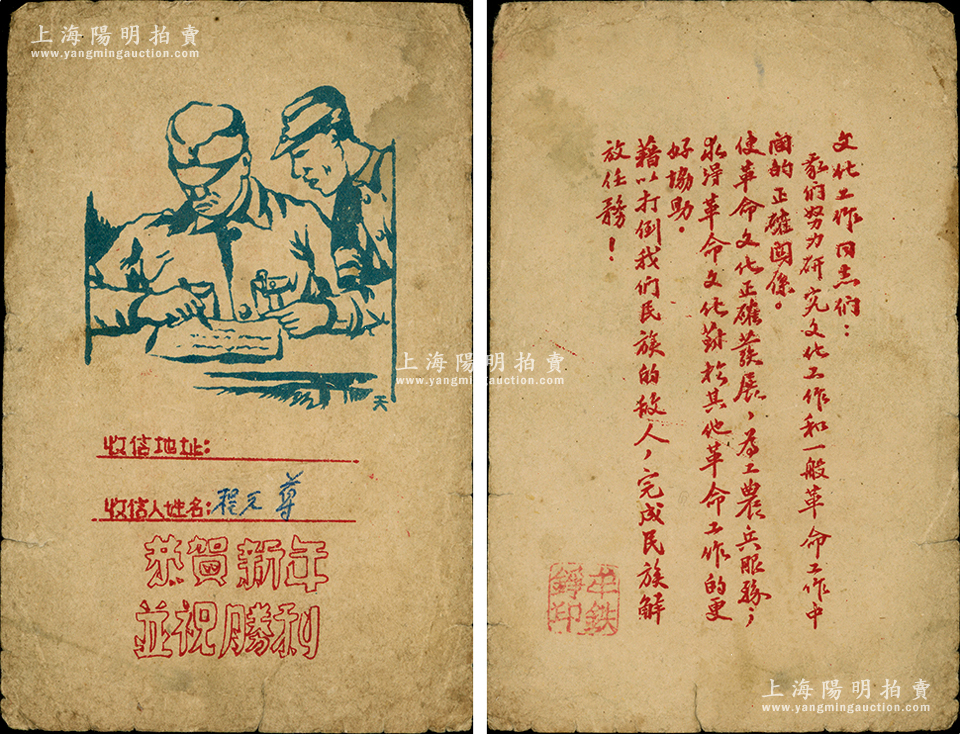 上海陽明拍賣
www.yangmingauction.com
天
收信地址：
收信人姓名：程元尊
恭賀新年
並祝勝利
文化工作同志們：
我們努力研究文化工作和一般革命工作中
间的正確関係。
使革命文化正確發展，为工農兵服務；
求得革命文化對於其他革命工作的更
好協助。
藉以打倒我們民族的敌人，完成民族解
放任務！
牟鉄
錚印
上海陽明拍賣
www.yangmingauction.com
上海陽明拍賣
www.yangmingauction.com